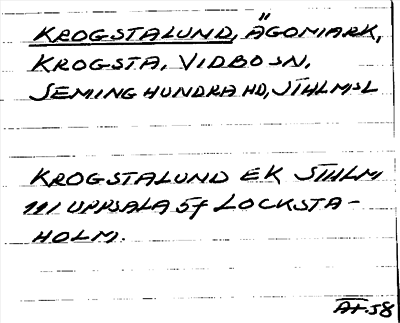 KROGSTALUND, ÄGOMARK,
KROGSTA, VIDBO SN,
SEMINGHUNDRA HD, STHLMSL
KROGSTALUND EK STHLM
111 UPPSALA 5f LOCKSTA-
HOLM.
AF.58